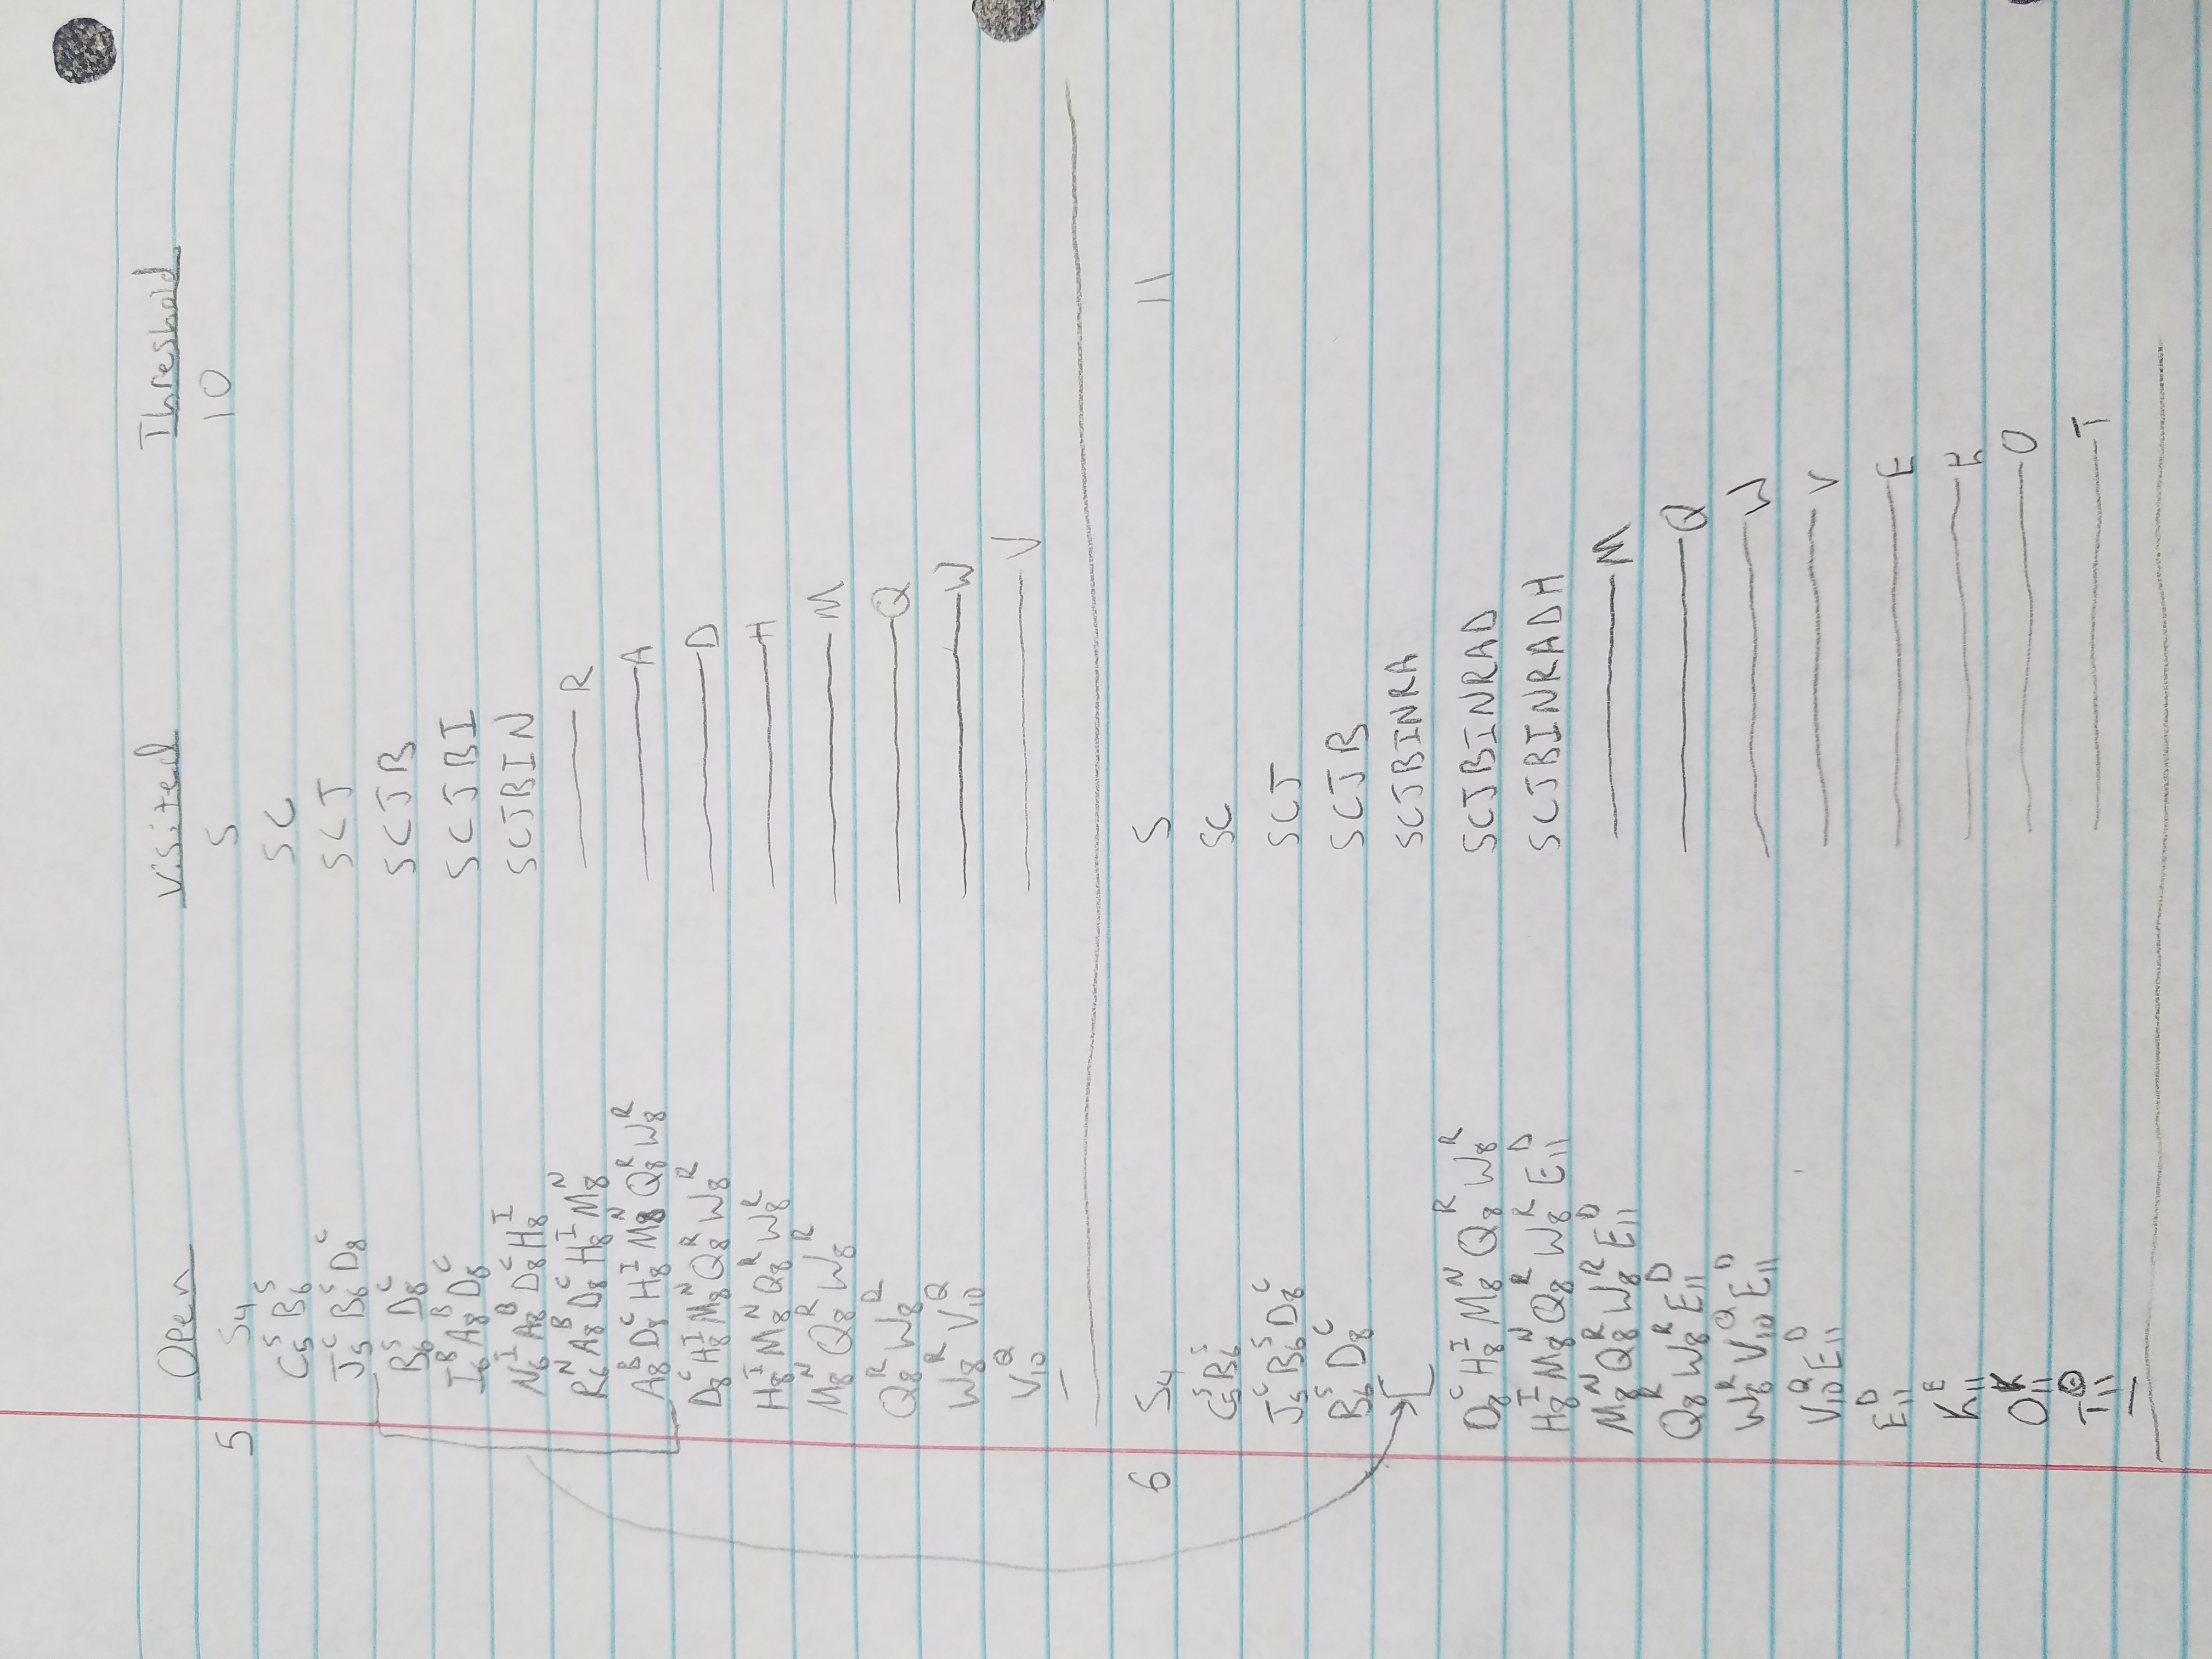 Open Visited Threshold
5 S₄ S 10
C₅ˢ B₆ˢ SC
J₅ᶜ B₆ᶜ D₈ᶜ SCJ
B₆ˢ D₈ᶜ SCJB
I₆ᴮ A₈ᴮ D₈ᶜ SCJBI
N₆ᴵ A₈ᴮ D₈ᶜ H₈ᴵ SCJBIN
R₆ᴺ A₈ᴮ D₈ᶜ H₈ᴵ M₈ᴺ —— R
A₈ᴮ D₈ᶜ H₈ᴵ M₈ᴺ Q₈ᴿ W₈ᴿ —— A
D₈ᶜ H₈ᴵ M₈ᴺ Q₈ᴿ W₈ᴿ —— D
H₈ᴵ M₈ᴺ Q₈ᴿ W₈ᴿ —— H
M₈ᴺ Q₈ᴿ W₈ᴿ —— M
Q₈ᴿ W₈ᴿ —— Q
W₈ᴿ V₁₀Q —— W
V₁₀Q —— V
—
6 S₄ S 11
C₅ˢ B₆ˢ SC
J₅ᶜ B₆ˢ D₈ᶜ SCJ
B₆ˢ D₈ᶜ SCJB
[ SCJBINRA
D₈ᶜ H₈ᴵ M₈ᴺ Q₈ᴿ W₈ᴿ SCJBINRAD
H₈ᴵ M₈ᴺ Q₈ᴿ W₈ᴿ E₁₁ᴰ SCJBINRADH
M₈ᴺ Q₈ᴿ W₈ᴿ E₁₁ᴰ —— M
Q₈ᴿ W₈ᴿ E₁₁ᴰ —— Q
W₈ᴿ V₁₀Q E₁₁ᴰ —— W
V₁₀Q E₁₁ᴰ —— V
E₁₁ᴰ —— E
K₁₁ᴱ —— K
O₁₁ᴷ —— O
T₁₁ᴼ —— T
—